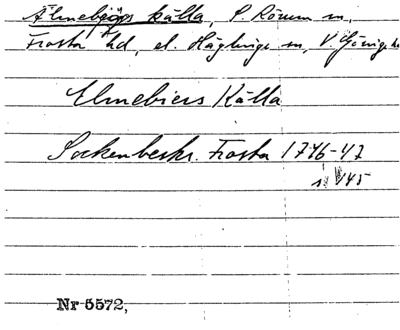 Älmebjärs källa, S. Rörum sn,
Frosta hd, el. Häglinge sn, V. Göinge hd
Elmebiers Källa
Sockenbeskr. Frosta 1746-47
s. 145
Nr 5572,